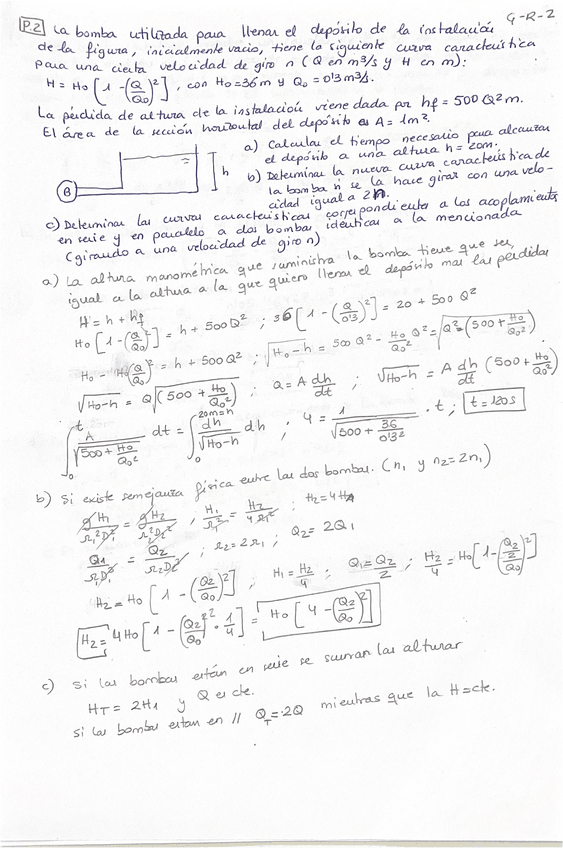 P.2 La bomba utilizada para llenar el depósito de la instalación G-R-2
de la figura, inicialmente vacio, tiene la siguiente curva característica
para una cierta velocidad de giro n (Q en m³/s y H en m):
H = Ho [1 - (Q/Qo)²], con Ho = 36 m y Qo = 0'3 m³/s.
La pérdida de altura de la instalación viene dada por hf = 500 Q² m.
El área de la sección horizontal del depósito es A = 1m².
a) Calcular el tiempo necesario para alcanzar
el depósito a una altura h = 20m.
b) Determinar la nueva curva característica de
la bomba si se la hace girar con una velo-
cidad igual a 2n.
B
h
c) Determinar las curvas características correspondientes a los acoplamientos
en serie y en paralelo a dos bombas idénticas a la mencionada
(girando a una velocidad de giro n)
a) La altura manométrica que suministra la bomba tiene que ser,
igual a la altura a la que quiero llenar el depósito mas las perdidas
H = h + hf
Ho [1 - (Q/Qo)²] = h + 500Q² ; 36 [1 - (Q/0'3)²] = 20 + 500 Q²
Ho - Ho(Q/Qo)² = h + 500Q² ; √(Ho - h) = 500 Q² - Ho/Qo² Q² = √(Q² = (500 + Ho/Qo²))
√(Ho-h) = Q √(500 + Ho/Qo²) ; Q = A dh/dt ; √(Ho-h) = A dh/dt (500 + Ho/Qo²)
∫₀ᵗ A/√(500 + Ho/Qo²) dt = ∫₀^(20m=h) dh/√(Ho-h) dh ; 4 = 1/√(500 + 36/0'3²) · t ; t = 120s
b) Si existe semejanza física entre las dos bombas. (n₁ y n₂ = 2n₁)
gH₁/Ω₁²D₁² = gH₂/Ω₂²D₂² ; H₁/Ω₁² = H₂/4Ω₁² ; H₂ = 4H₁
Q₁/Ω₁D₁³ = Q₂/Ω₂D₂³ ; Ω₂ = 2Ω₁ ; Q₂ = 2Q₁
H₂ = Ho [1 - (Q₂/Qo)²] ; H₁ = H₂/4 ; Q₁ = Q₂/2 ; H₂/4 = Ho [1 - (Q₂/2/Qo)²]
H₂ = 4Ho [1 - (Q₂/Qo)² · 1/4] = Ho [4 - (Q₂/Qo)²]
c) Si las bombas están en serie se suman las alturas
H_T = 2H₁ y Q es cte.
si las bombas estan en // Q_T = 2Q mientras que la H = cte.